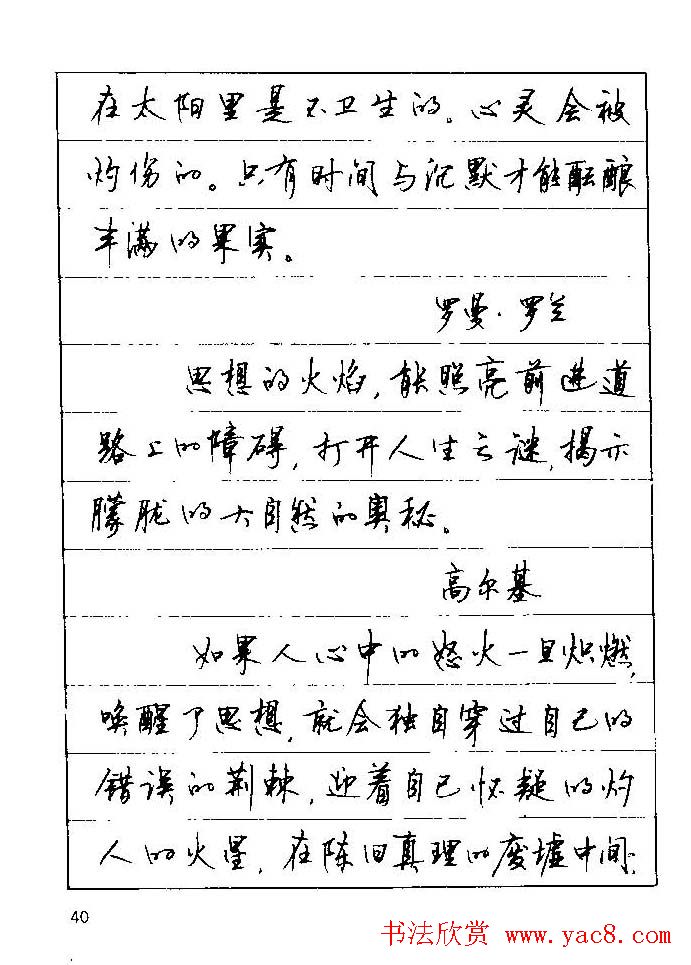 在太阳里是不卫生的。心灵会被
灼伤的。只有时间与沉默才能酝酿
丰满的果实。
罗曼·罗兰
思想的火焰，能照亮前进道
路上的障碍，打开人生之谜，揭示
朦胧的大自然的奥秘。
高尔基
如果人心中的怒火一旦炽燃，
唤醒了思想，就会独自穿过自己的
错误的荆棘，迎着自己怀疑的灼
人的火星，在陈旧真理的废墟中间，
40
书法欣赏 www.yac8.com